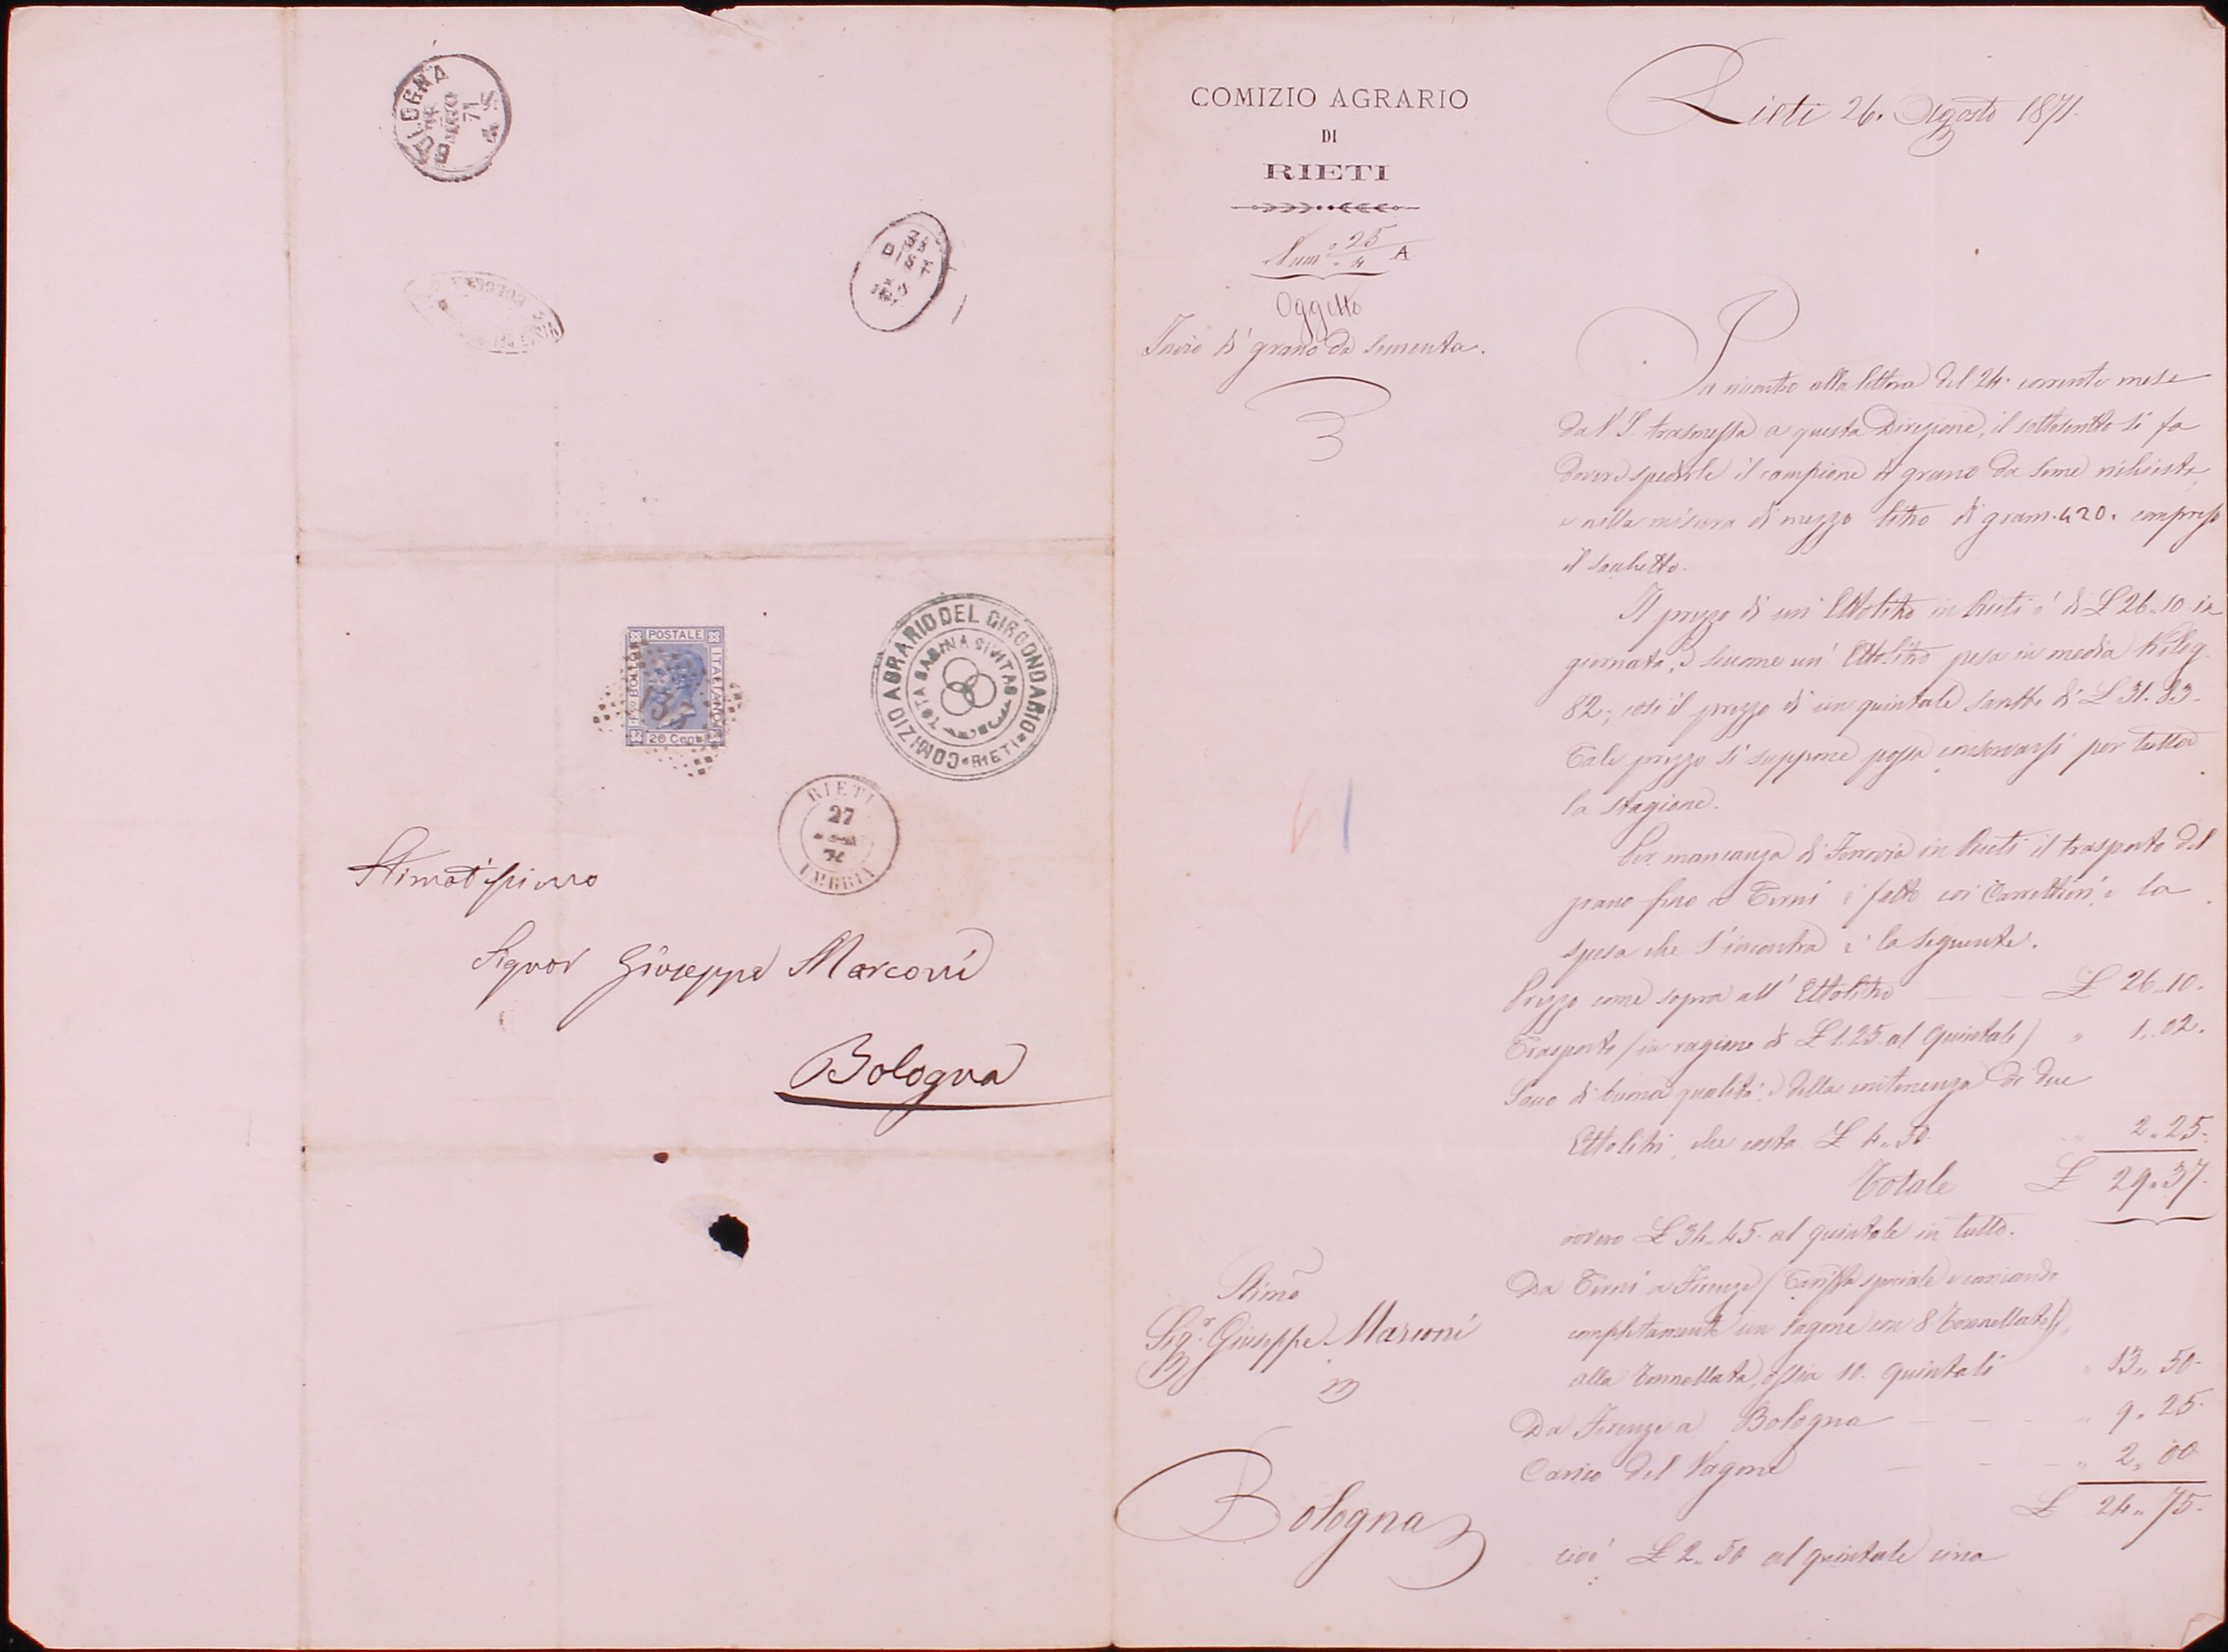 BOLOGNA
71
DIST
POSTALE
ITALIANO
BOLLO
20 Cent
COMIZIO AGRARIO DEL CIRCONDARIO
RIETI
TOTA SABINA CIVITAS
RIETI
27
UMBRIA
Stimatissimo
Signor Giuseppe Marconi
Bologna
COMIZIO AGRARIO
DI
RIETI
Num° 25/4 A
Oggetto
Invio di grano da sementa.
Stimo
Sigr. Giuseppe Marconi
Bologna
Rieti 26. Agosto 1871.
In riscontro alla lettera del 24. corrente mese
da V.S. trasmessa a questa Direzione, il sottoscritto si fa
dovere spedirle il campione di grano da seme richiesto
e nella misura di mezzo litro di gram. 420. compreso
il sachetto.
Il prezzo di un' Ettolitro in Rieti è di £ 26.10 in
giornata, e siccome un' Ettolitro pesa in media Kilog.
82., così il prezzo di un quintale sarebbe di £ 31.83.
Tale prezzo si suppone possa conservarsi per tutta
la stagione.
Per mancanza di Ferrovia in Rieti il trasporto del
grano fino a Terni è fatto coi Carrettieri, e la
spesa che s'incontra è la seguente.
Prezzo come sopra all' Ettolitro £ 26.10.
Trasporto (in ragione di £ 1.25 al Quintale) " 1.02.
Sacco di buona qualità, e della contenenza di due
Ettolitri, che costa £ 4.50 " 2.25.
Totale £ 29.37.
ovvero £ 34.45 al quintale in tutto.
Da Terni a Firenze (Tariffa speciale e caricando
completamente un Vagone con 8 Tonnellate),
alla Tonnellata, ossia 10. Quintali " 13.50.
Da Firenze a Bologna " 9.25.
Carico del Vagone " 2.00
£ 24.75.
cioè £ 2.50 al quintale circa